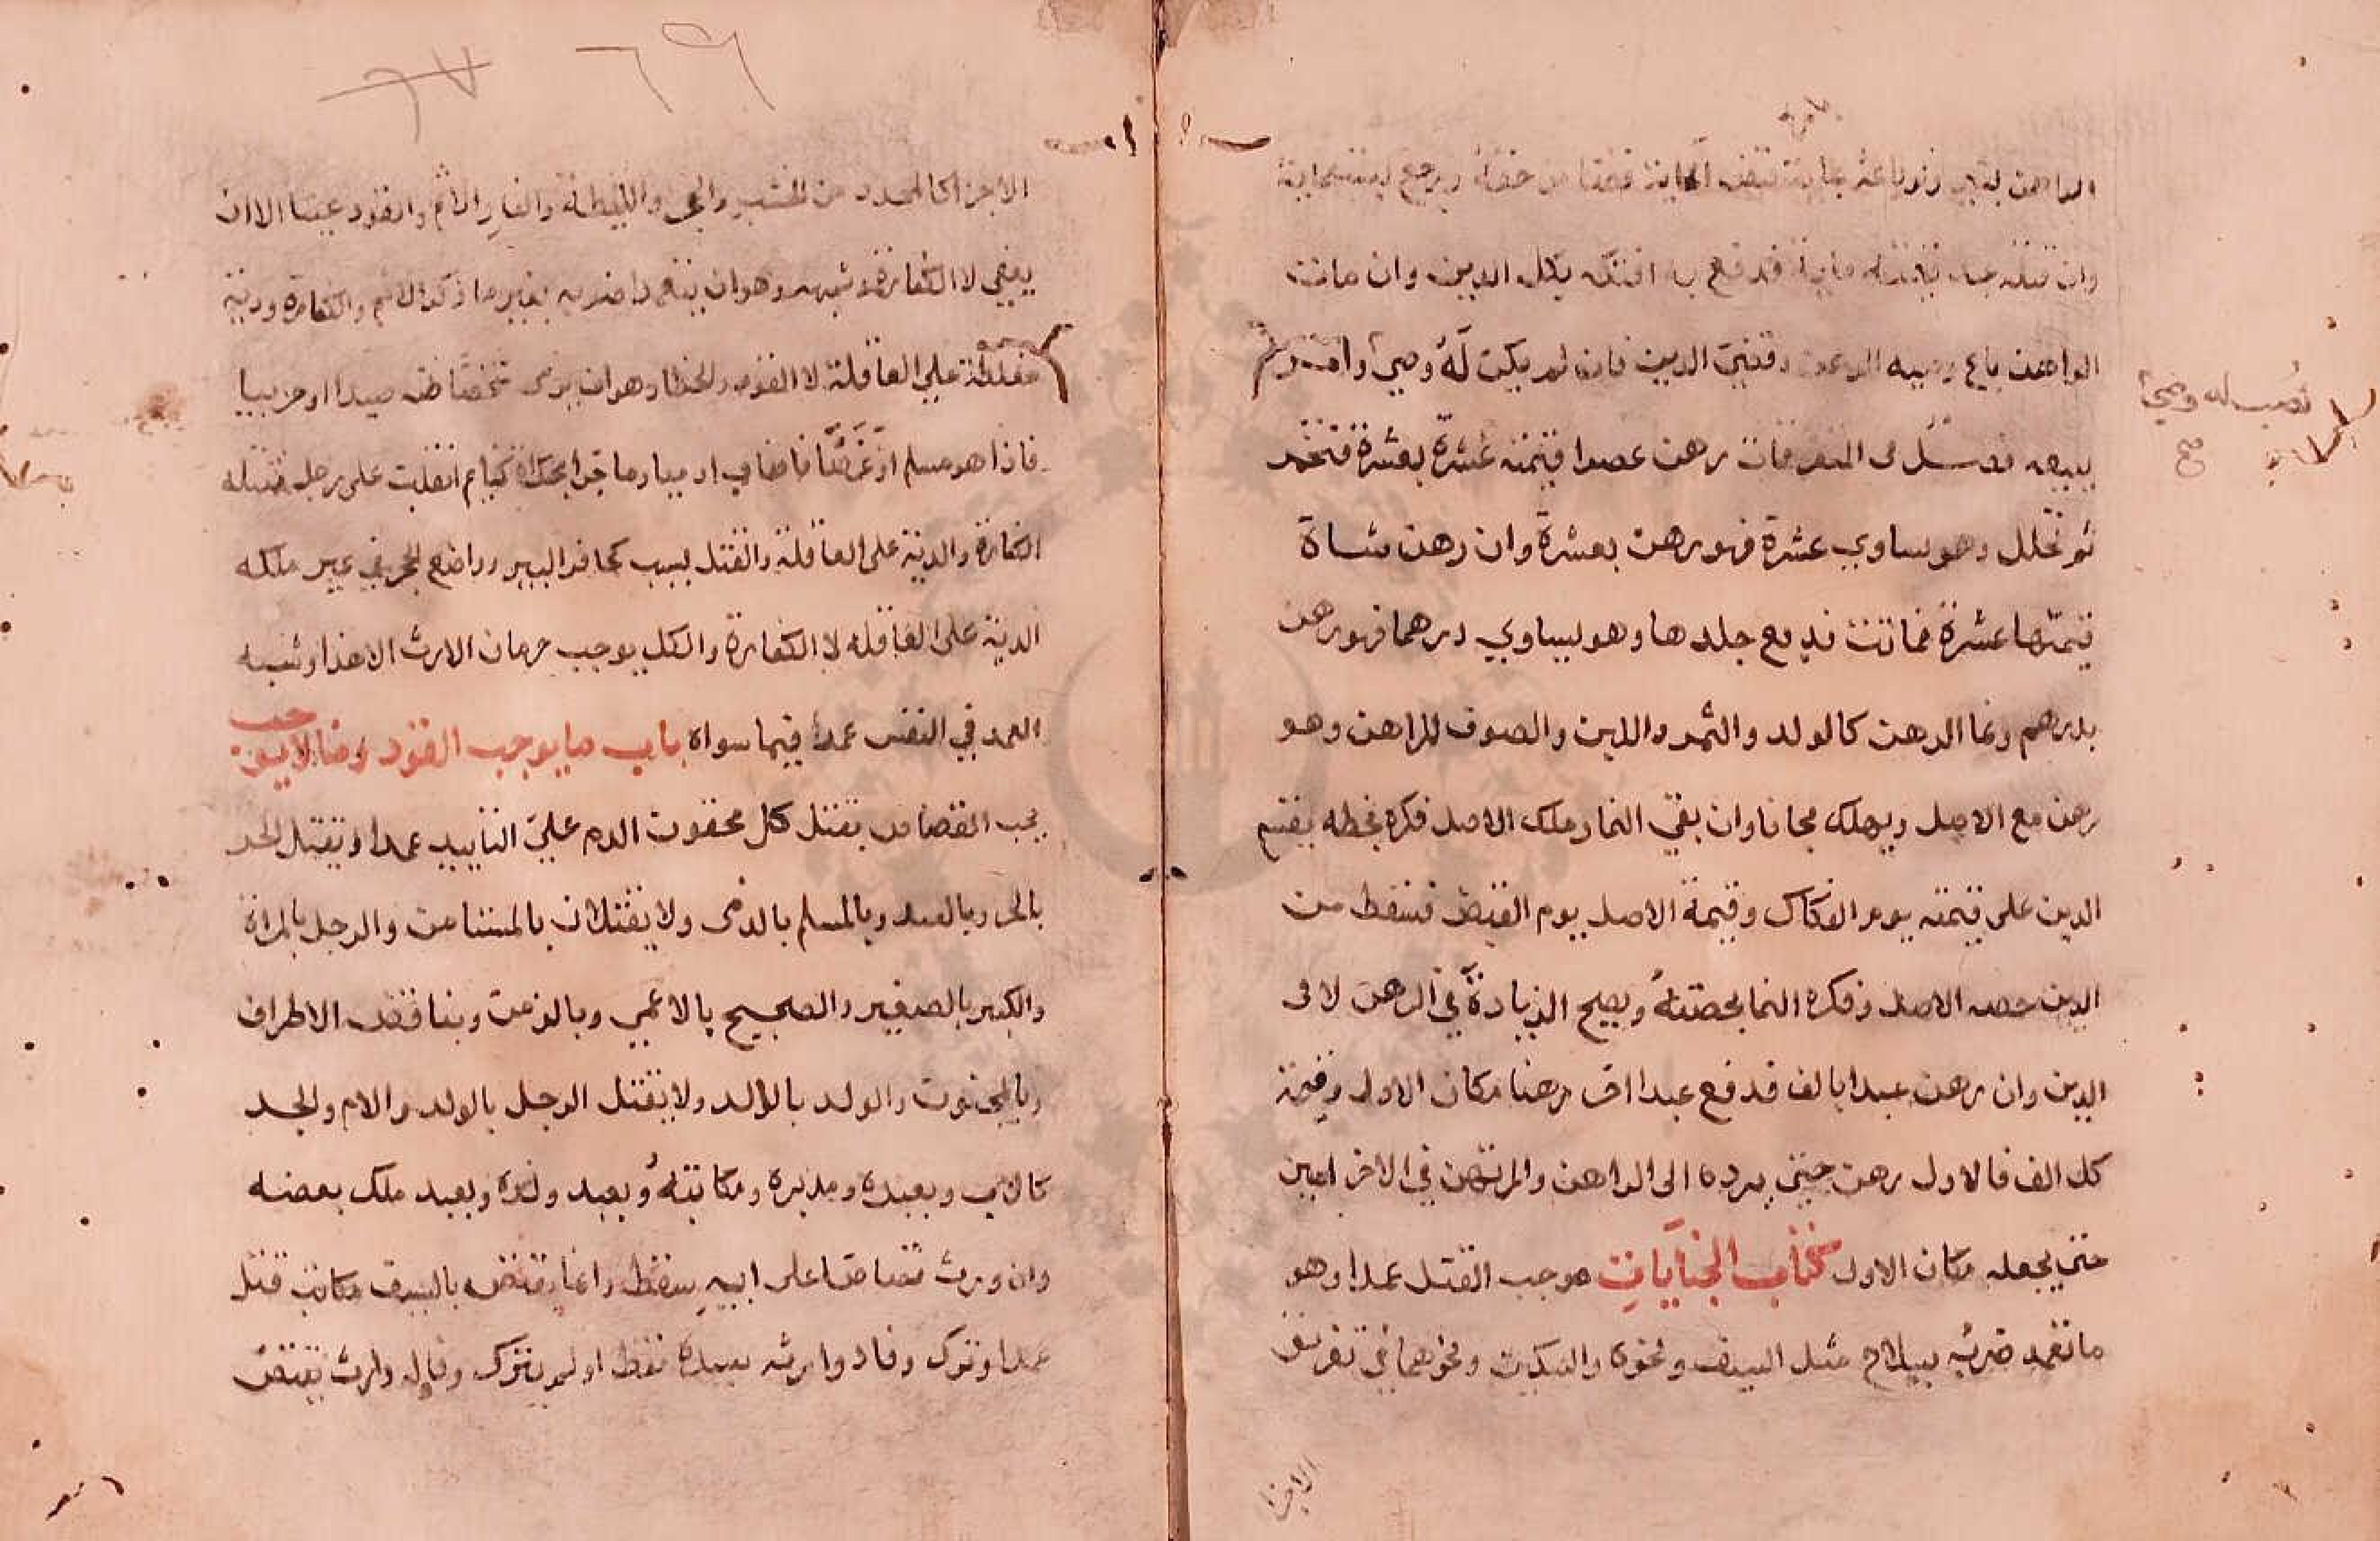 وان قتله عبد قيمته ماية فدفع به افتكه بكل الدين وان مات
الراهن باع وصيه الرهن وقضي الدين فان لم يكن له وصي وامر
نصب له وصي
صح
ببيعه فصل في المتفرقات رهن عصيرا قيمته عشرة بعشرة فتخمر
ثم تخلل وهو يساوي عشرة فهو رهن بعشرة وان رهن شاة
قيمتها عشرة فماتت فدبغ جلدها وهو يساوي درهما فهو رهن
بدرهم ونما الرهن كالولد والثمر واللبن والصوف للراهن وهو
رهن مع الاصل ويهلك مجانا وان بقي النما وهلك الاصل فكه بحظه يقسم
الدين على قيمته يوم الفكاك وقيمة الاصل يوم القبض فسقط من
الدين حصه الاصل وفكه النما بحصته ويصح الزيادة في الرهن لا في
الدين وان رهن عبدا بالف فدفع عبدا اخر رهنا مكان الاول وقيمة
كل الف فالاول رهن حتى يرده الى الراهن والمرتهن في الاخر امين
حتى يجعله مكان الاول كتاب الجنايات موجب القتل عمدا وهو
ما تعمد ضربه بسلاح مثل السيف ونحوه والسكين ونحوهما في تفريق
الاجزا
الاجزا كالمحدد من الخشب والحجر والليطة والنار الاثم والقود عينا الا ان
يعفي لا الكفارة وشبهه وهو ان يتعمد ضربه بغير ما ذكر الاثم والكفارة ودية
مغلظة على العاقلة لا القود والخطا وهو ان يرمى شخصا ظنه صيدا او حربيا
فاذا هو مسلم او غرضا فاصاب ادميا وما جرا مجراه كنايم انقلب على رجل فقتله
الكفارة والدية على العاقلة والقتل بسبب كحافر البير وواضع الحجر في غير ملكه
الدية على العاقلة لا الكفارة والكل يوجب حرمان الارث الا هذا وشبه
العمد في النفس عمدا فيما سواه باب ما يوجب القود وما لا يوجب
يجب القصاص بقتل كل محقون الدم علي التابيد عمدا ويقتل الحر
بالحر وبالعبد وبالمسلم بالذمى ولا يقتلان بالمستامن والرجل بالمراة
والكبير بالصغير والصحيح بالاعمي وبالزمن وبناقص الاطراف
وبالمجنون والولد بالوالد ولا يقتل الرجل بالولد والام والجد
كالاب وبعبده ومدبره ومكاتبه وبعبد ولده وبعبد ملك بعضه
وان ورث قصاصا على ابيه سقط وانما يقتص بالسيف مكاتب قتل
عمدا وترك وفا ووارثه سيده فقط او لم يترك وفا وله وارث يقتص